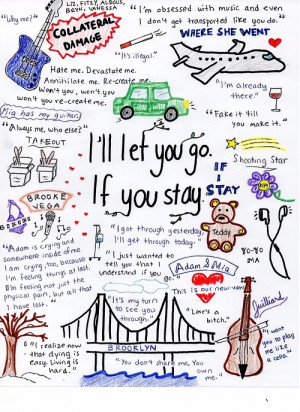 "Why me?"
LIZ, FITZY, ALDOUS,
BRYN, VANESSA
COLLATERAL
DAMAGE
"I'm obsessed with music and even
I don't get transported like you do."
WHERE SHE WENT
"It's illegal."
Hate me. Devastate me.
Annihilate me. Re-create me.
Won't you, won't you
won't you re-create me.
"I'm already
there."
Mia has my guitar.
"Fake it till
you make it."
"Always me, who else?"
TAKEOUT
I'll let you go.
If you stay.
Shooting Star
IF
I
STAY
BROOKE
VEGA
Teddy
"I got through yesterday
I'll get through today."
YO-YO
MA
"Adam is crying and
somewhere inside of me
I am crying, too, because
I'm feeling things at last.
I'm feeling not just the
physical pain, but all that
I have lost."
"I just wanted to
tell you that I
understand if you
go."
Adam & Mia
This is our new vow.
"It's my turn
to see you
through."
"Love's a
bitch."
Juilliard
BROOKLYN
"I realize now
that dying is
easy. Living is
hard."
"You don't share me. You
own me."
"I want
you to play
me like
a cello."